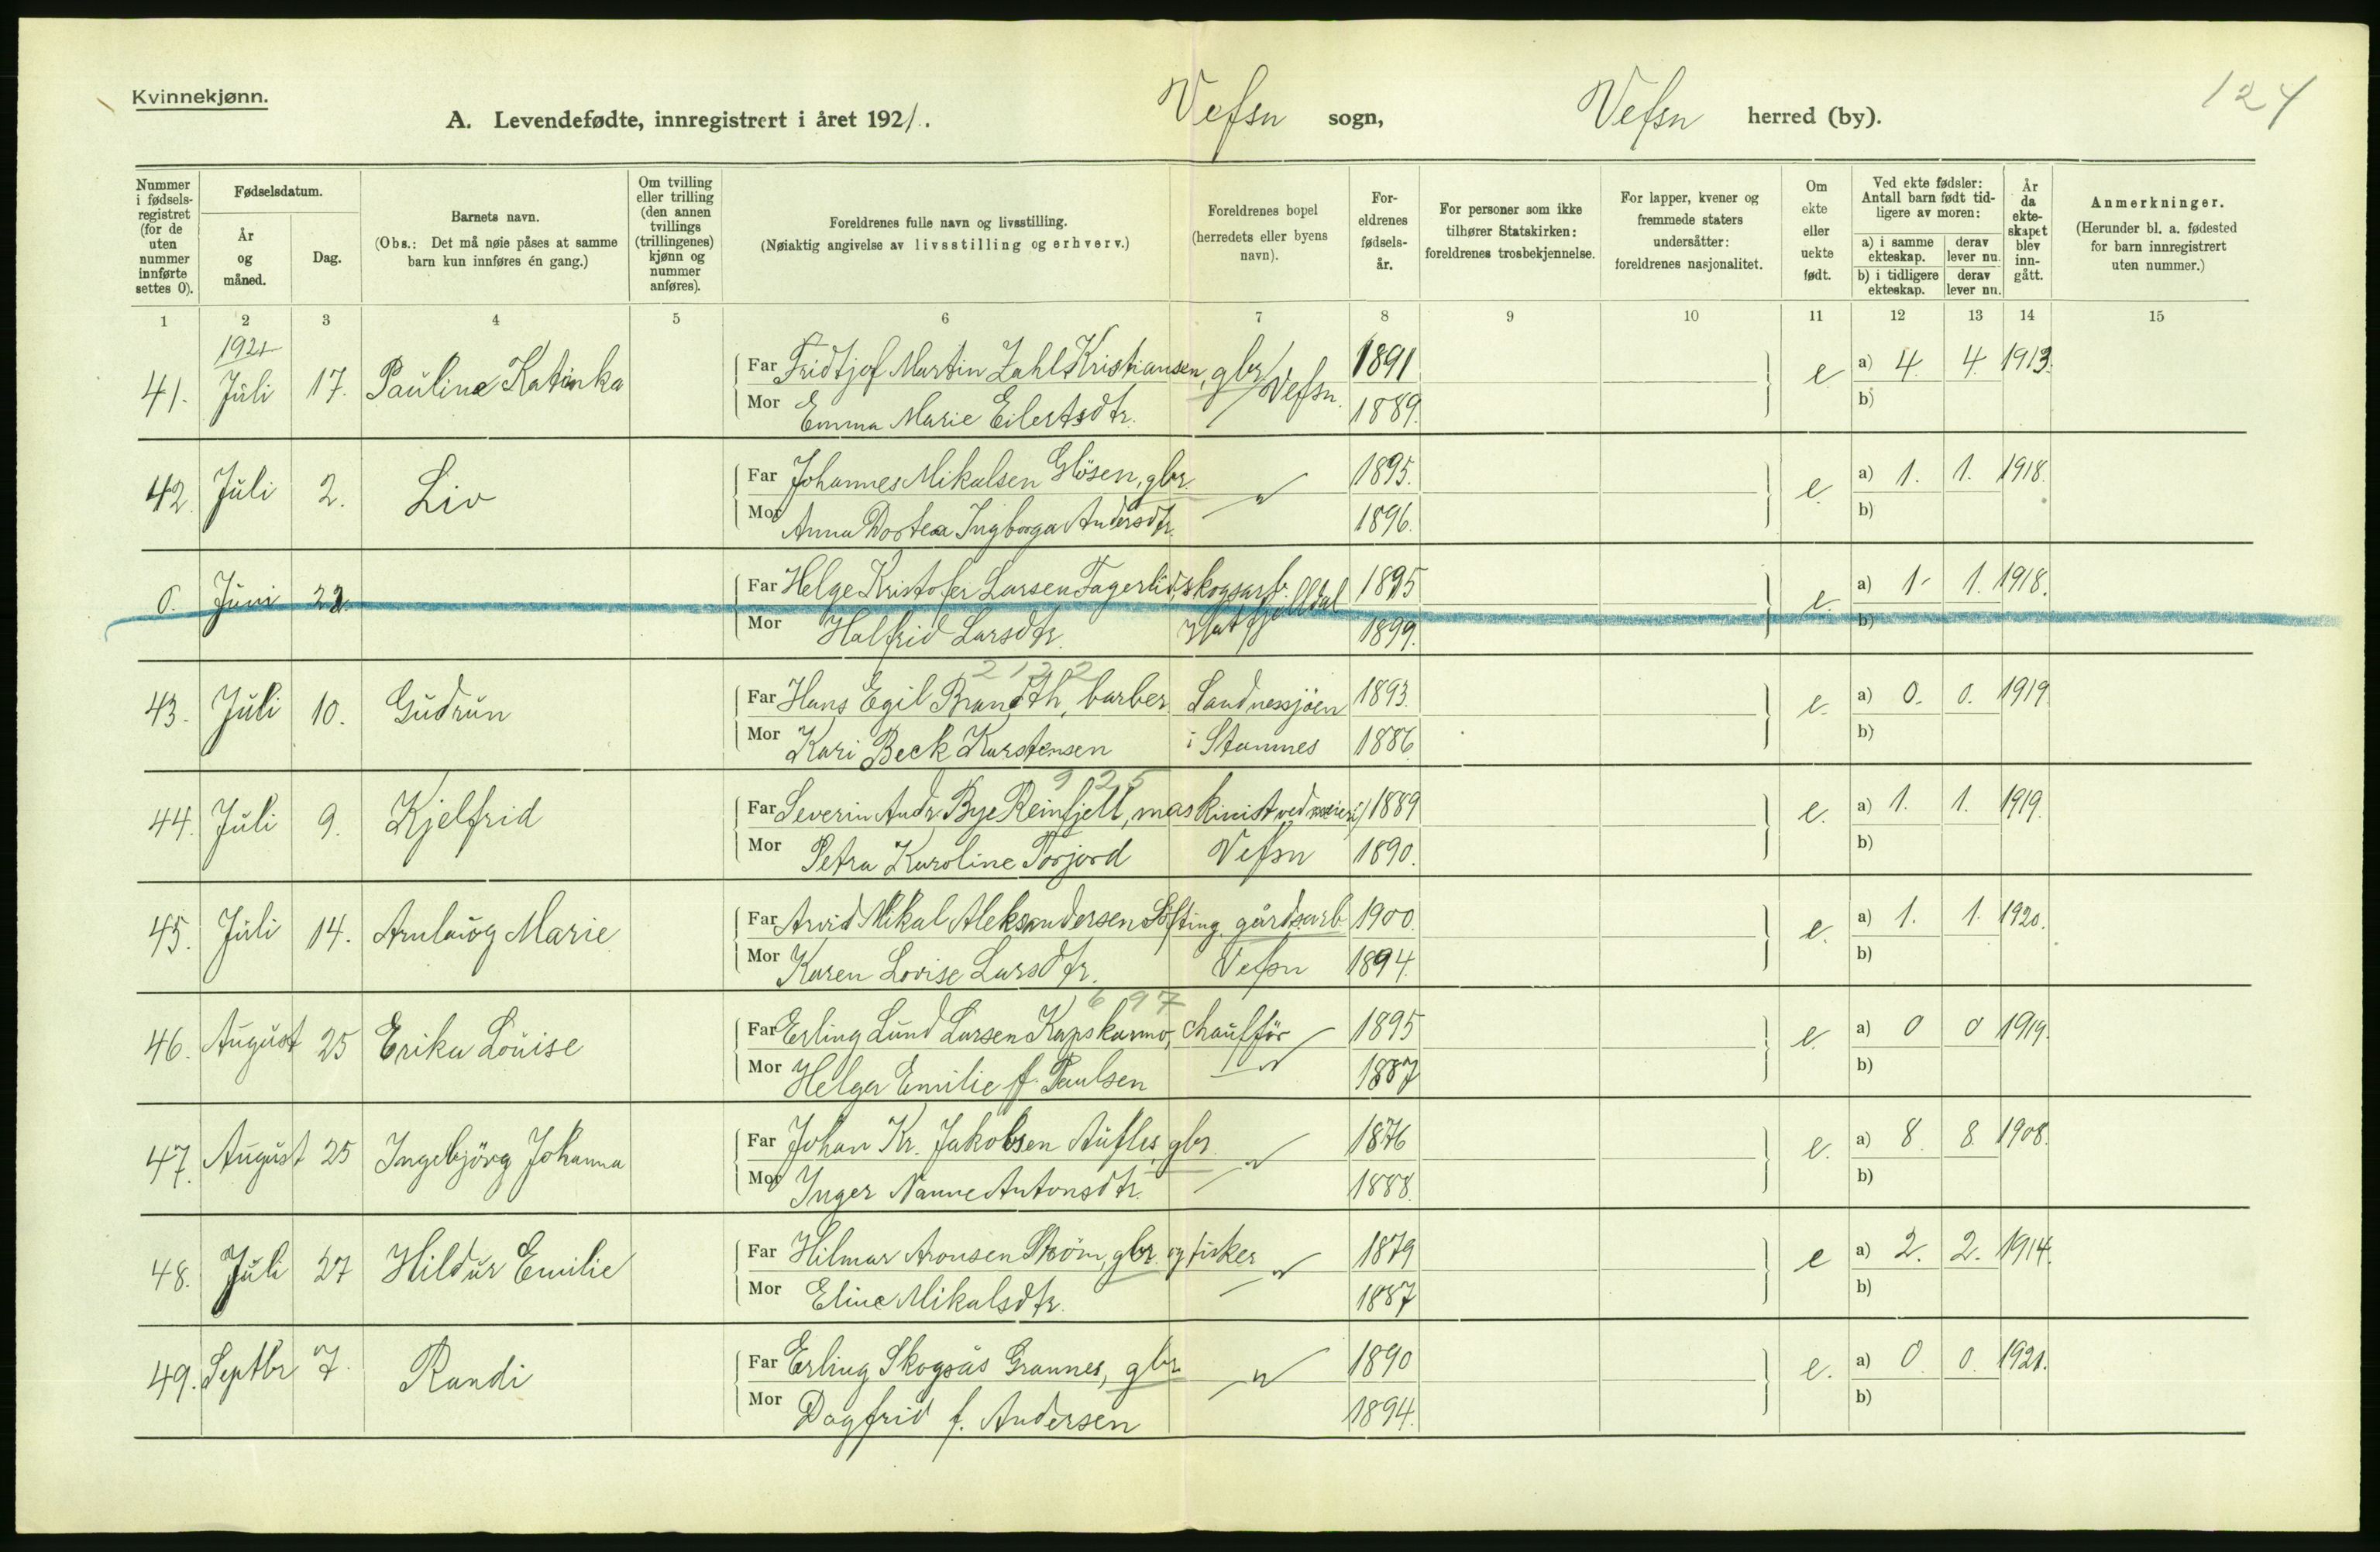 Kvinnekjønn.
124
A. Levendefødte, innregistrert i året 1921. Vefsn sogn, Vefsn herred (by).
Nummer i fødselsregistret (for de uten nummer innførte settes 0).
Fødselsdatum.
År og måned.
Dag.
Barnets navn.
(Obs.: Det må nøie påses at samme barn kun innføres én gang.)
Om tvilling eller trilling (den annen tvillings (trillingenes) kjønn og nummer anføres).
Foreldrenes fulle navn og livsstilling.
(Nøiaktig angivelse av livsstilling og erhverv.)
Foreldrenes bopel (herredets eller byens navn).
Foreldrenes fødselsår.
For personer som ikke tilhører Statskirken: foreldrenes trosbekjennelse.
For lapper, kvener og fremmede staters undersåtter: foreldrenes nasjonalitet.
Om ekte eller uekte født.
Ved ekte fødsler: Antall barn født tidligere av moren:
a) i samme ekteskap. derav lever nu.
b) i tidligere ekteskap. derav lever nu.
År da ekteskapet blev inngått.
Anmerkninger.
(Herunder bl. a. fødested for barn innregistrert uten nummer.)
1 2 3 4 5 6 7 8 9 10 11 12 13 14 15
1921
41. Juli 17. Pauline Katinka Far Fridtjof Martin Zahl Kristiansen, gbr. Vefsn. 1891 e a) 4 4 1913.
Mor Emma Marie Eilertsdtr. 1889. b)
42. Juli 2. Liv Far Johannes Mikalsen Glösen, gbr. 1895. e. a) 1. 1. 1918.
Mor Anna Dortea Ingborga Andersdtr. — " — 1896. b)
0. Juni 22. Far Helge Kristofer Larsen Fagerlid, skogsarb. 1895 e. a) 1 1. 1918.
Mor Halfrid Larsdtr. Hatfjelldal 1899. b)
2132
43. Juli 10. Gudrun Far Hans Egil Brandth, barber Sandnessjöen 1893. e. a) 0. 0. 1919
Mor Kari Beck Karstensen i Stamnes 1886 b)
925
44. Juli 9. Kjelfrid Far Severin Andr. Bye Reinfjell, maskinist ved meieri 1889 e. a) 1. 1. 1919.
Mor Petra Karoline Forjord Vefsn 1890. b)
45. Juli 14. Arnlaug Marie Far Arvid Mikal Aleksandersen Söfting, gårdsarb 1900. e. a) 1. 1. 1920.
Mor Karen Lovise Larsdtr. Vefsn 1894. b)
697
46. August 25 Erika Louise Far Erling Lund Larsen Kapskarmo, chaufför 1895 e. a) 0 0 1919.
Mor Helga Emilie f. Paulsen — " — 1887 b)
47. August 25 Ingebjörg Johanna Far Johan Kr. Jakobsen Aufles, gbr. 1876 e. a) 8. 8. 1908.
Mor Inger Nanne Antonsdtr. — " — 1888. b)
48. Juli 27 Hildur Emilie Far Hilmar Aronsen Ström, gbr. og fisker 1879 e a) 2. 2. 1914.
Mor Eline Mikalsdtr. — " — 1887 b)
49. Septbr 7. Randi Far Erling Skogsås Grannes, gbr — " — 1890 e. a) 0 0. 1921.
Mor Dagfrid f. Andersen 1894. b)